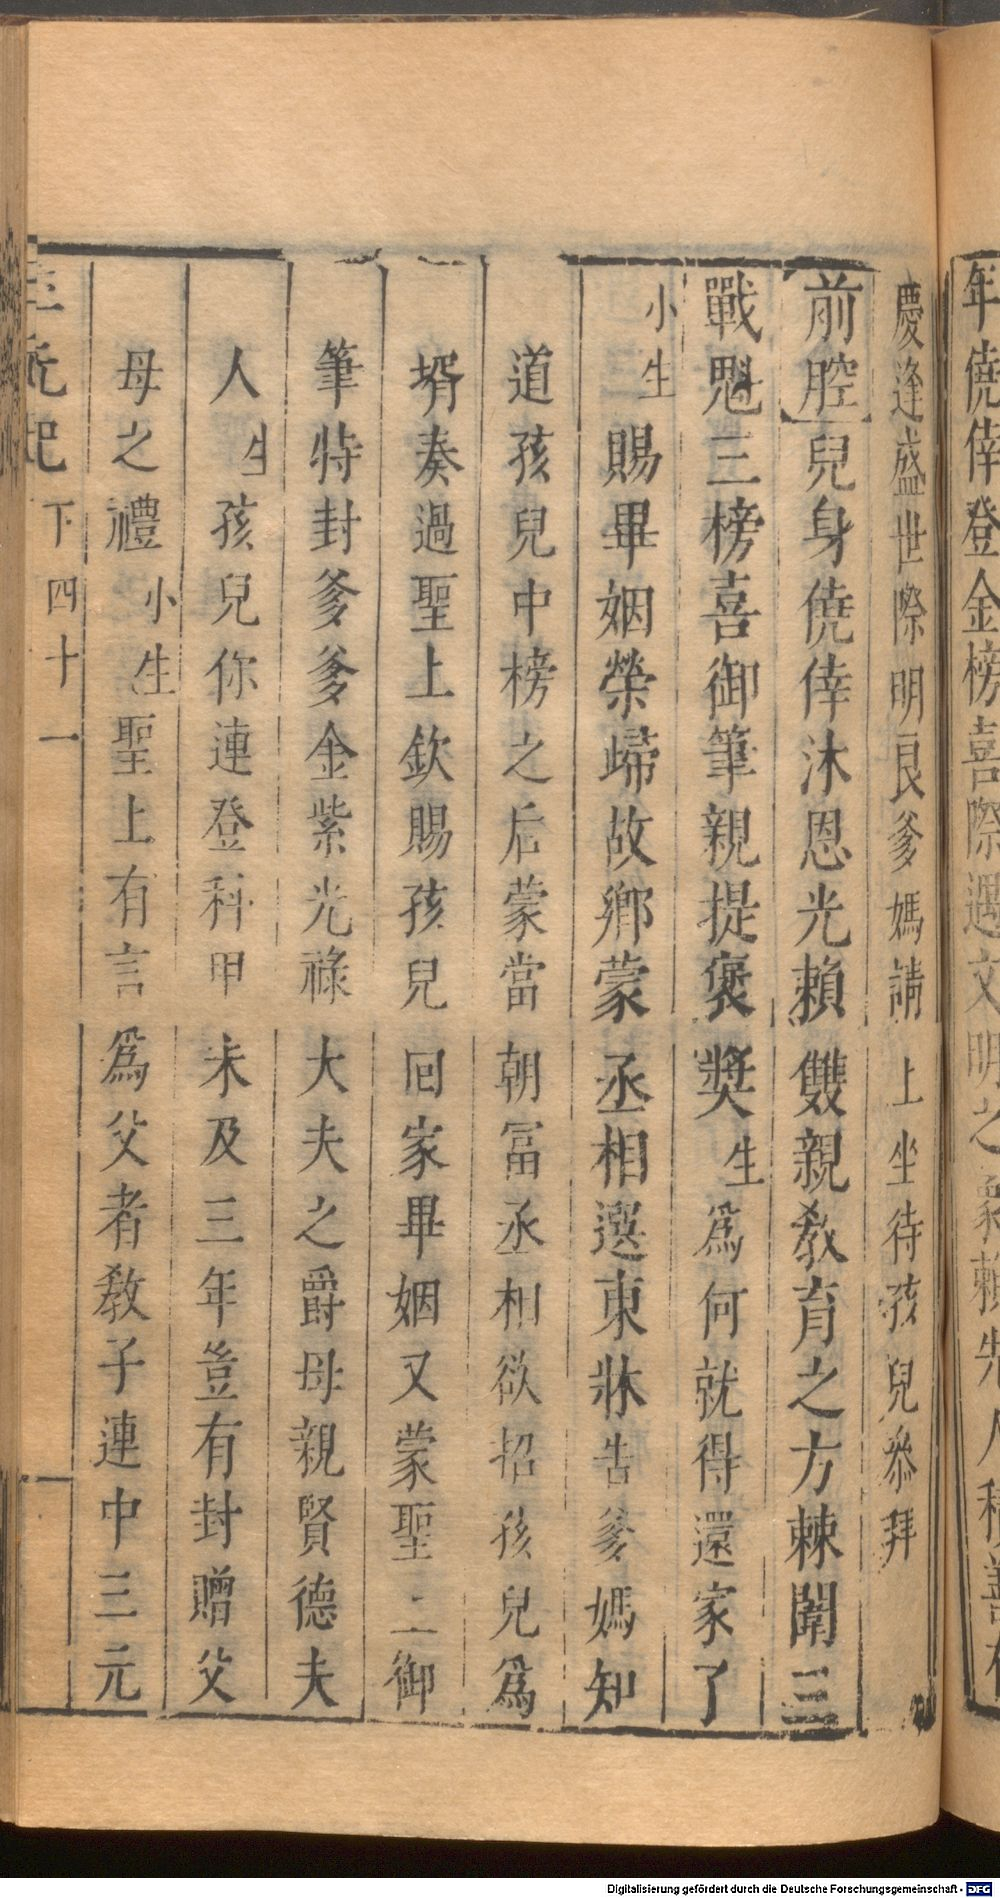 年僥倖登金榜喜際遇文明之象賴先人積善
慶逢盛世際明良爹媽請上坐待孩兒叅拜
前腔兒身僥倖沐恩光賴雙親敎育之方棘闈三
戰魁三榜喜御筆親提褒奬生為何就得還家了
小生賜畢姻榮歸故鄉蒙丞相選東牀告爹媽知
道孩兒中榜之后蒙當朝冨丞相欲招孩兒為
壻奏過聖上欽賜孩兒回家畢姻又蒙聖上御
筆特封爹爹金紫光祿大夫之爵母親賢德夫
人生孩兒你連登科甲未及三年豈有封贈父
母之禮小生聖上有言為父者敎子連中三元
三元記下四十一
Digitalisierung gefördert durch die Deutsche Forschungsgemeinschaft - DFG